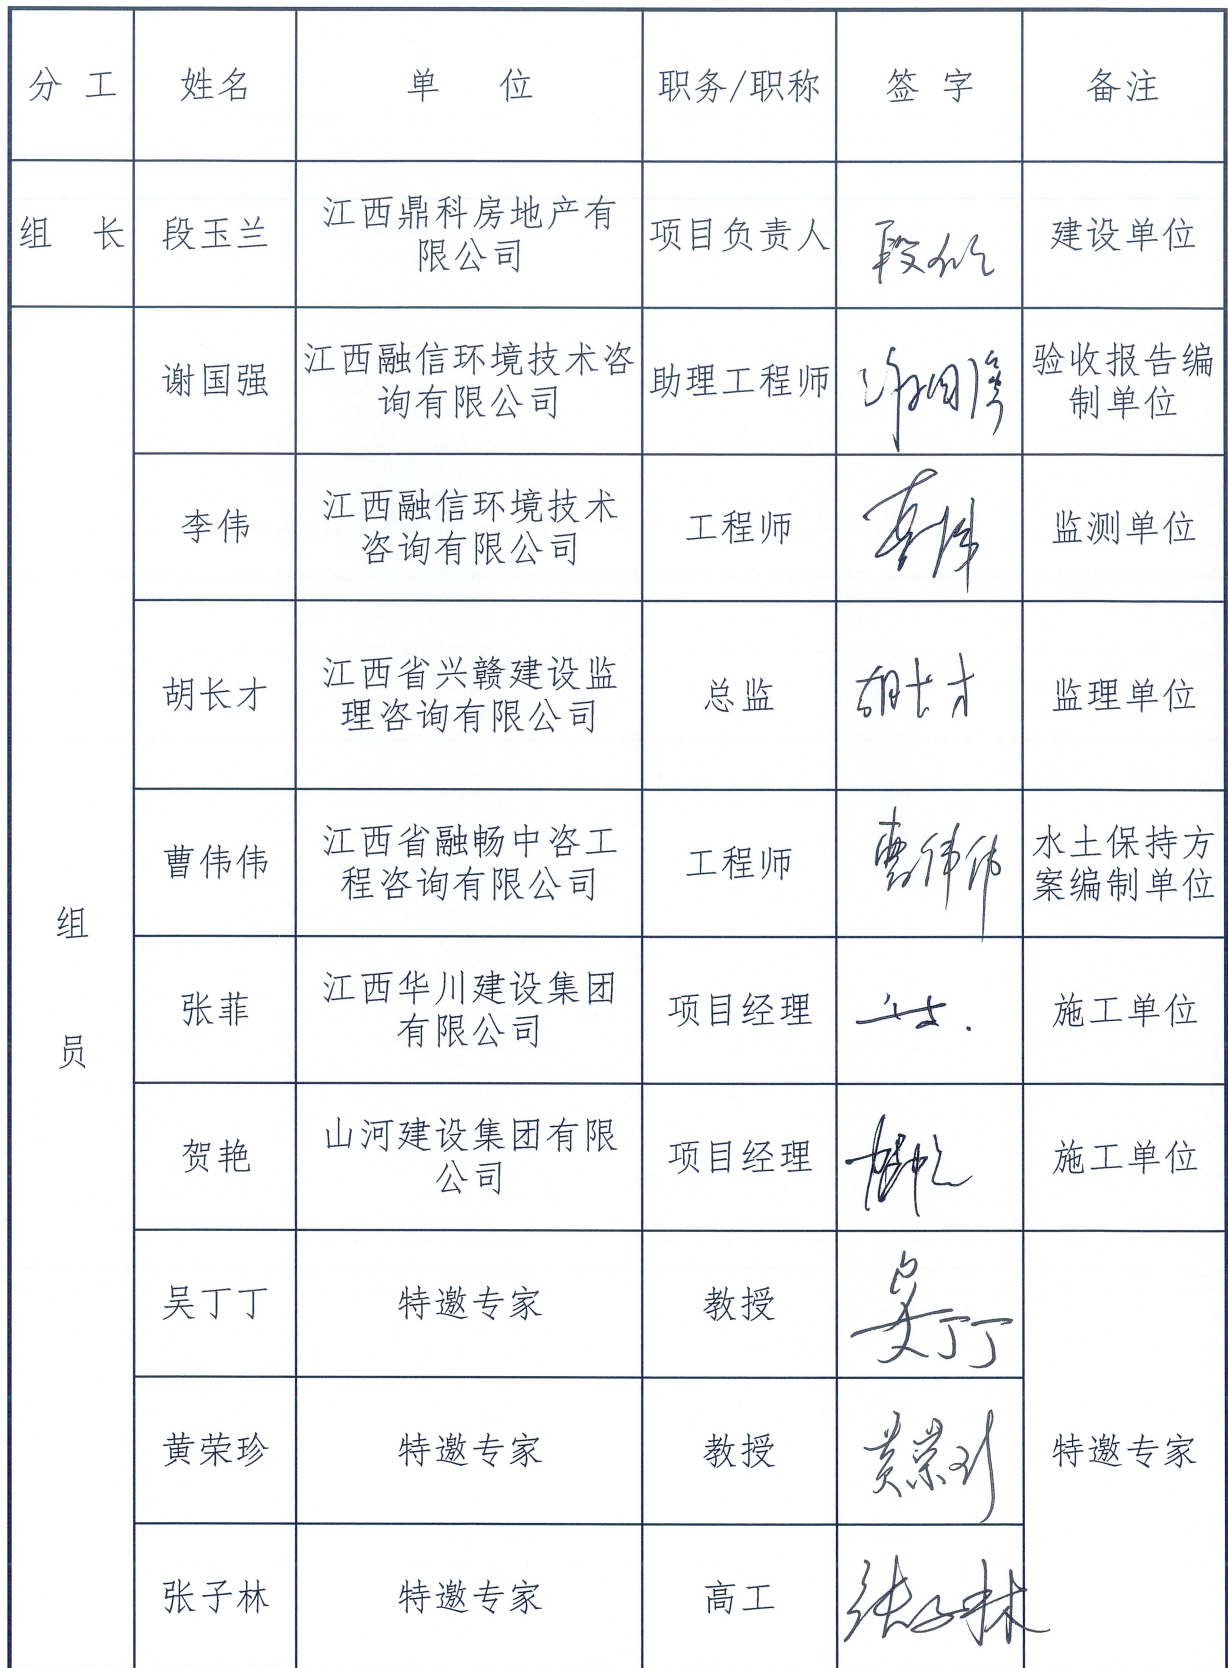 分 工 姓名 单 位 职务/职称 签 字 备注
组 长 段玉兰 江西鼎科房地产有限公司 项目负责人 建设单位
组员
谢国强 江西融信环境技术咨询有限公司 助理工程师 谢国强 验收报告编制单位
李伟 江西融信环境技术咨询有限公司 工程师 李伟 监测单位
胡长才 江西省兴赣建设监理咨询有限公司 总监 胡长才 监理单位
曹伟伟 江西省融畅中咨工程咨询有限公司 工程师 曹伟伟 水土保持方案编制单位
张菲 江西华川建设集团有限公司 项目经理 施工单位
贺艳 山河建设集团有限公司 项目经理 施工单位
吴丁丁 特邀专家 教授 吴丁丁 特邀专家
黄荣珍 特邀专家 教授 黄荣珍
张子林 特邀专家 高工 张子林